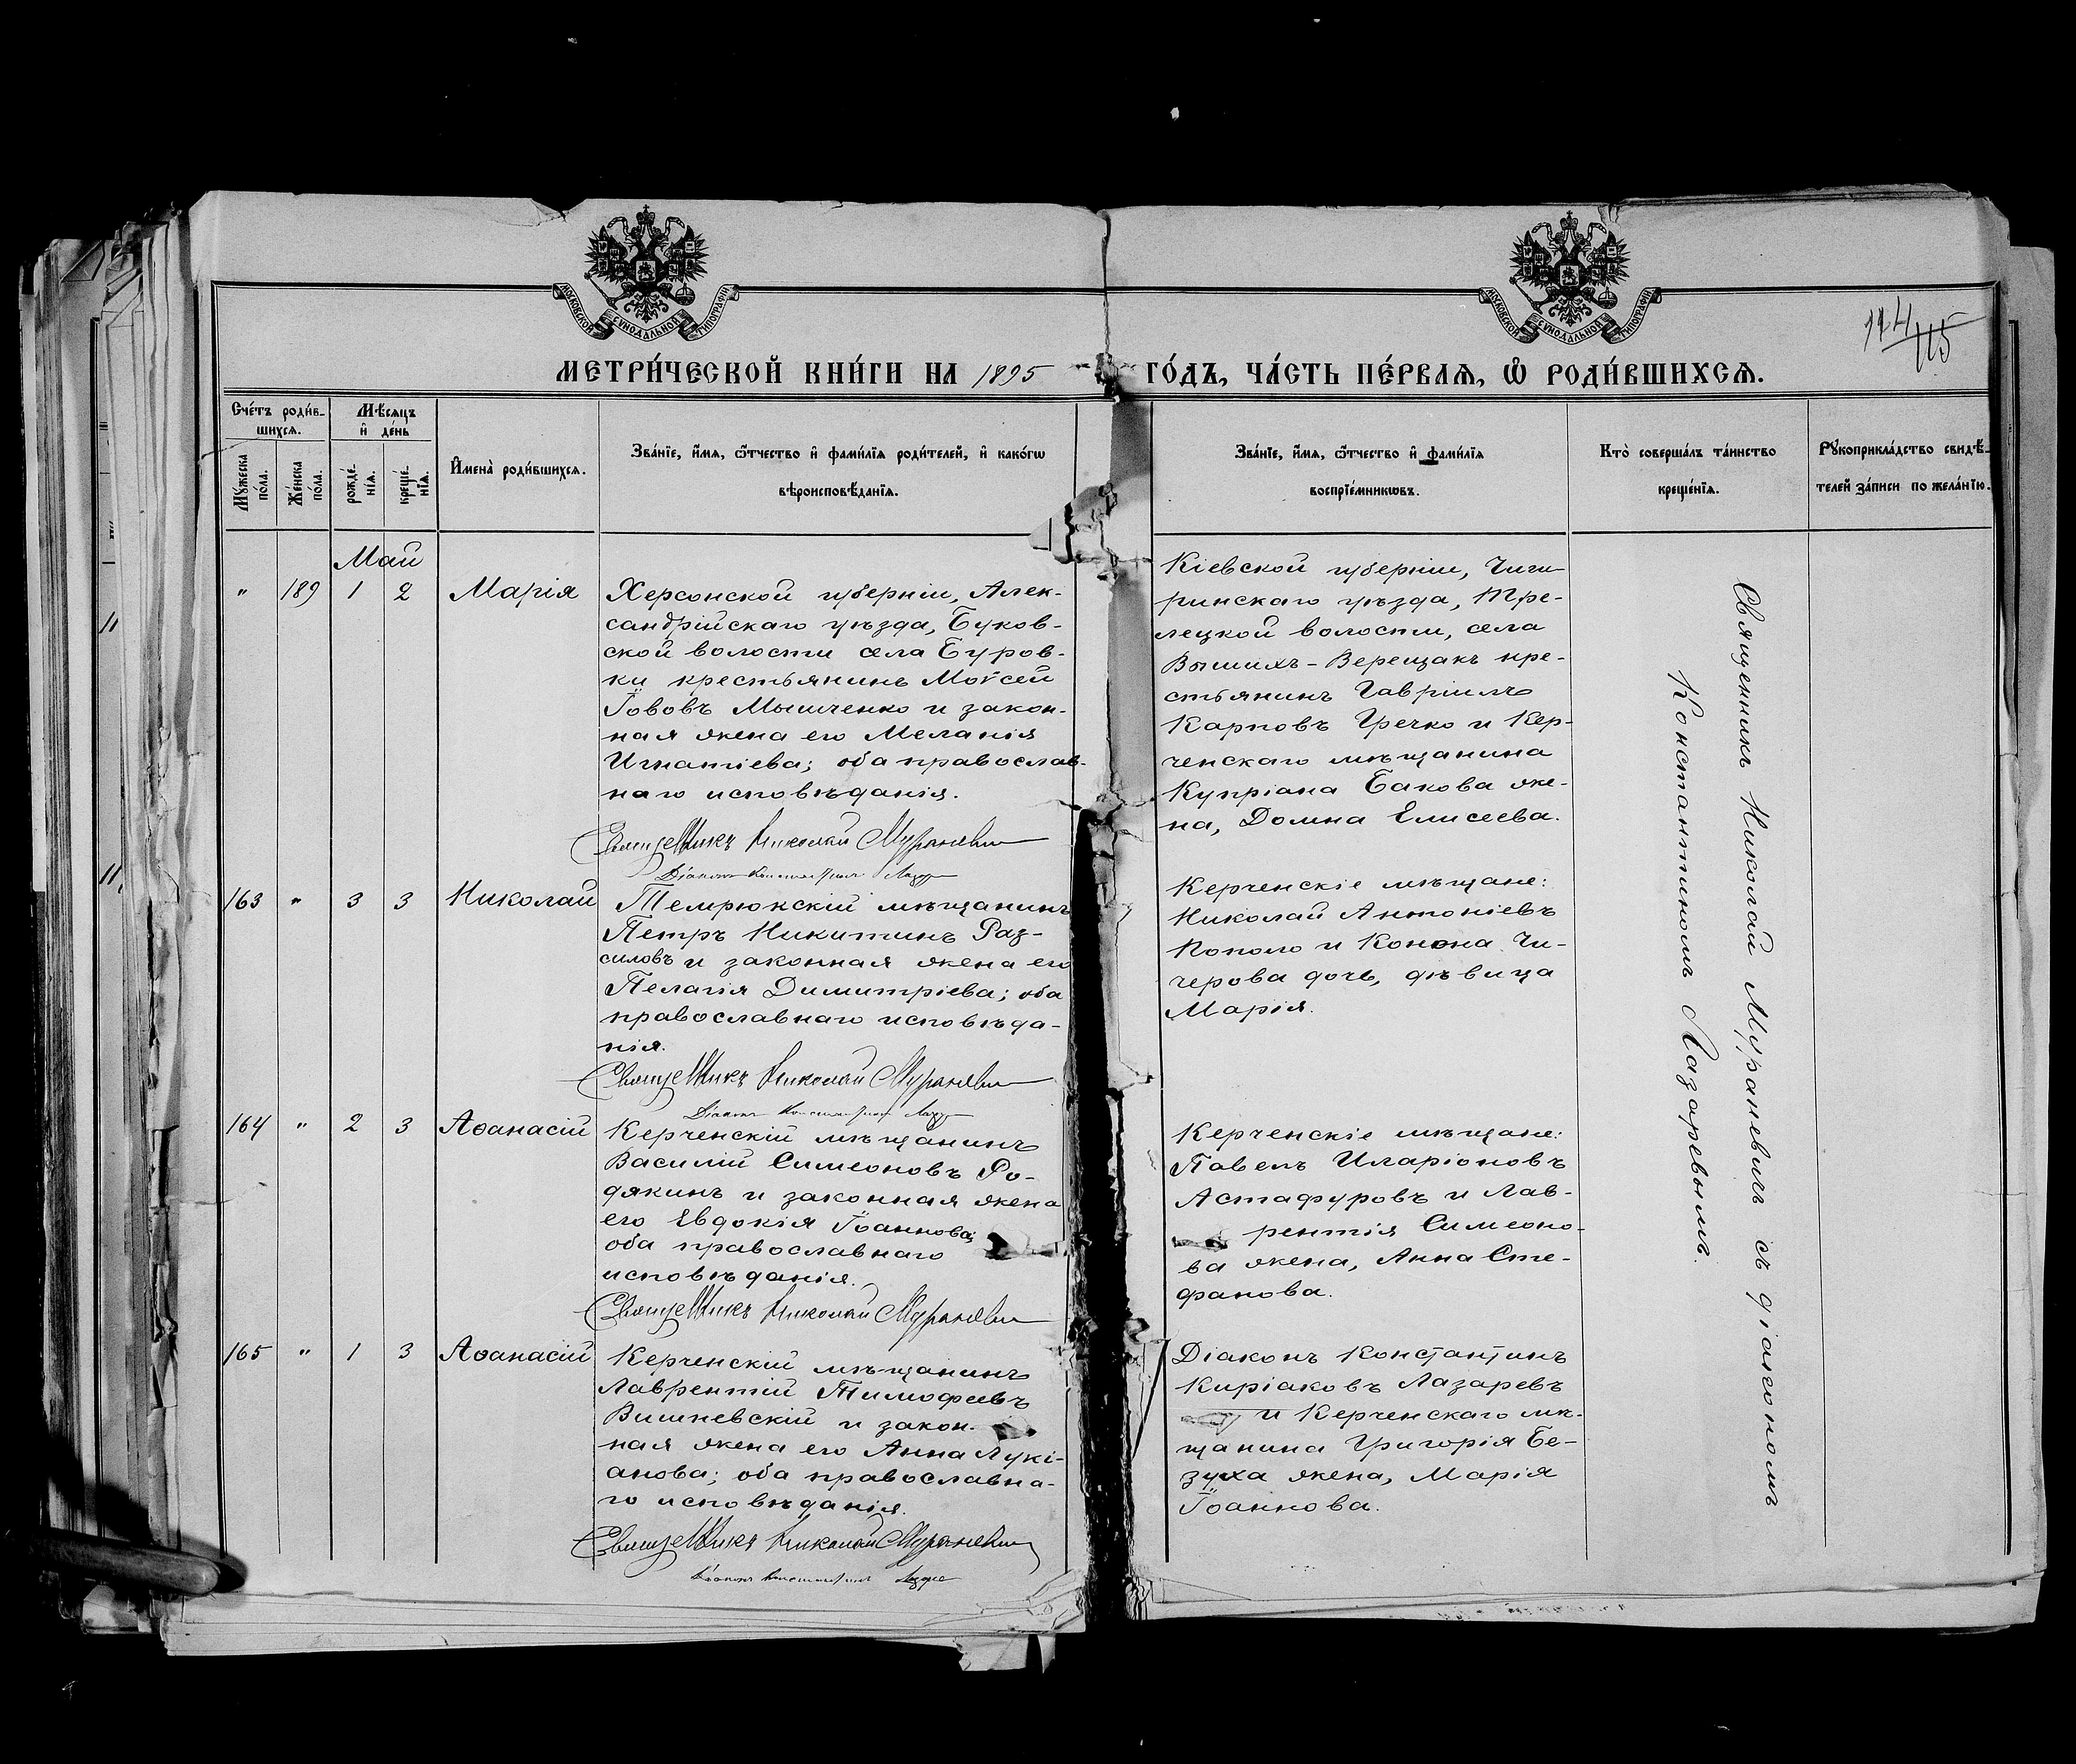 МОСКОВСКОЙ СѴНОДАЛЬНОЙ ТИПОГРАФІИ
МОСКОВСКОЙ СѴНОДАЛЬНОЙ ТИПОГРАФІИ
114
115
МЕТРИ́ЧЕСКОЙ КНИ́ГИ НА 1895 ГО́ДЪ, ЧА́СТЬ ПЕ́РВАЯ, Ѡ РОДИ́ВШИХСЯ.
Сче́тъ роди́в-
шихся.
Мѣ́сяцъ
и де́нь
Му́жеска
по́ла.
Же́нска
по́ла.
рожде́-
нія.
креще́-
нія.
Имена̀ роди́вшихся.
Зва́нїе, и́мя, ѻ҆́тчество и҆ фами́лїя роди́телей, и҆ како́гѡ
вѣроисповѣ́данїя.
Зва́нїе, и́мя, ѻ҆́тчество и҆ фами́лїя
воспрїе́мникѡвъ.
Кто̀ соверша́лъ та́инство
креще́нїя.
Рꙋкоприкла́дство свидѣ́-
телей за́писи по жела́нїю.
Май
" 189 1 2 Марія
Херсонской губерніи, Алек-
сандрійскаго уѣзда, Буков-
ской волости села Буров-
ки крестьянинъ Моѵсей
Іововъ Мышченко и закон-
ная жена его Меланія
Игнатіева; оба православ-
наго исповѣданія.
Священникъ Николай Мураневич
Діаконъ Константинъ Лазарев
Кіевской губерніи, Чиги-
ринскаго уѣзда, Тре-
лецкой волости, села
Вышихъ-Верещакъ кре-
стьянинъ Гавріилъ
Карповъ Гречко и Кер-
ченскаго мѣщанина
Купріана Бакова же-
на, Домна Елисеева.
163 " 3 3 Николай
Темрюкскій мѣщанинъ
Петръ Никитинъ Раз-
силовъ и законная жена его
Пелагія Димитріева; оба
православнаго исповѣда-
нія.
Священникъ Николай Мураневич
Діаконъ Константинъ Лазарев
Керченскіе мѣщане:
Николай Антоніевъ
Кополо и Конона Чи-
черова дочь, дѣвица
Марія.
164 " 2 3 Аѳанасій
Керченскій мѣщанинъ
Василій Симеоновъ Ро-
дякинъ и законная жена
его Евдокія Іоаннова;
оба православнаго
исповѣданія.
Священникъ Николай Мураневич
Керченскіе мѣщане:
Павелъ Иларіоновъ
Астафуровъ и Лав-
рентія Симеоно-
ва жена, Анна Сте-
фанова.
165 " 1 3 Аѳанасій
Керченскій мѣщанинъ
Лаврентій Тимофеевъ
Вишневскій и закон-
ная жена его Анна Лукі-
анова; оба православна-
го исповѣданія.
Священникъ Николай Мураневич
Діаконъ Константинъ Лазарев
Діаконъ Константинъ
Киріаковъ Лазаревъ
и Керченскаго мѣ-
щанина Григорія Бе-
зуха жена, Марія
Іоаннова.
Священникъ Николай Мураневичъ съ діакономъ
Константиномъ Лазаревымъ.